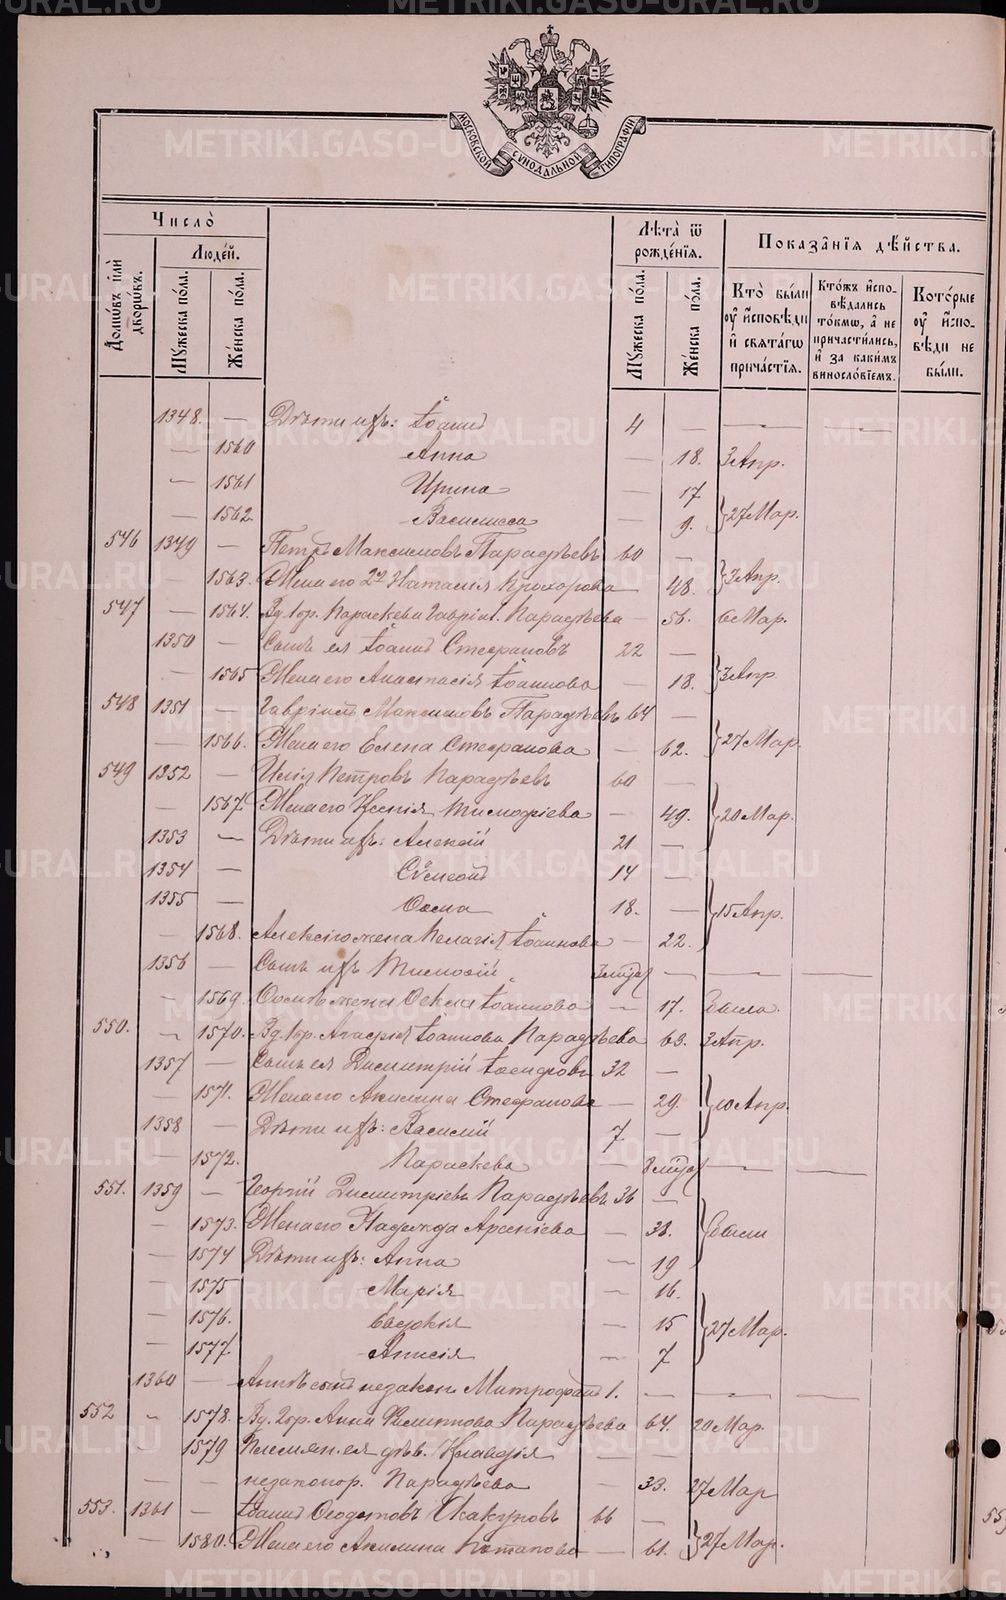 МОСКОВСКОЙ СѴНОДАЛЬНОЙ ТИПОГРАФІИ
Число̀
Домѡ́въ и҆лѝ дворѡ́въ.
Люде́й.
Мꙋ́жеска по́ла.
Же́нска по́ла.
Лѣ́та ѿ рожде́нїѧ.
Мꙋ́жеска по́ла.
Же́нска по́ла.
Показа̑нїѧ дѣ́йства.
Кто̀ бы́ли оу҆ и҆сповѣ́ди и҆ свѧта́гѡ прича́стїѧ.
Кто́жъ и҆спо-вѣ́дались то́кмѡ, а҆ не причасти́лись, и҆ за каки́мъ винослов́їемъ.
Кото́рые оу҆ и҆спо-вѣ́ди не бы́ли.
1348. — Дѣти ихъ: Іоаннъ 4 — — —
— 1560 Анна — 18. 3 Апр.
— 1561 Ирина — 17
— 1562 Василисса — 9. 27 Мар.
546 1349 — Петръ Максимовъ Парадѣевъ 60 —
— 1563. Жена его 2я Наталія Прохорова — 48. 3 Апр.
547 — 1564. Вд. Гор. Параскева Гавріил. Парадѣева — 56. 6 Мар.
1350 — Сынъ ея Іоаннъ Стефановъ 22 —
— 1565 Жена его Анастасія Іоаннова — 18. 3 Апр.
548 1351 — Гавріилъ Максимовъ Парадѣевъ 64 —
— 1566. Жена его Елена Стефанова — 62. 27 Мар.
549 1352 — Илія Петровъ Парадѣевъ 60 —
— 1567. Жена его Ксенія Тимофіева — 49. 20 Мар.
1353 — Дѣти ихъ: Алексій 21 —
1354 — Сѵмеонъ 14 —
1355 — Ѳома 18. — 15 Апр.
— 1568. Алексія жена Пелагія Іоаннова — 22.
1356 — Сынъ ихъ Тимофій — — —
— 1569. Ѳомы жена Ѳекла Іоаннова — 17. была.
550. — 1570. Вд. Гор. Агафія Іоаннова Парадѣева 63. 3 Апр.
1357 — Сынъ ея Димитрій Іосифовъ 32 —
— 1571. Жена его Акилина Стефанова — 29. 10 Апр.
1358 — Дѣти ихъ: Василій 7. —
— 1572. Параскева — — —
551. 1359 — Георгій Димитріевъ Парадѣевъ 36 —
— 1573. Жена его Надежда Арсеніева — 38. были
— 1574 Дѣти ихъ: Анна — 19
— 1575 Марія — 16.
— 1576. Евдокія — 15 27 Мар.
— 1577. Анисія — 7
1360 — Анны сынъ незакон. Митрофанъ 1. — — —
552 — 1578. Вд. Гор. Анна Филиппова Парадѣева 64. 20 Мар.
— 1579 Племян. ея дѣв. Клавдія — —
— — незаконор. Парадѣева — 33. 27 Мар
553. 1361 — Іоаннъ Ѳедотовъ Шакуновъ 66 —
— 1580. Жена его Акилина Потапова — 61. 27 Мар.
METRIKI.GASO-URAL.RU